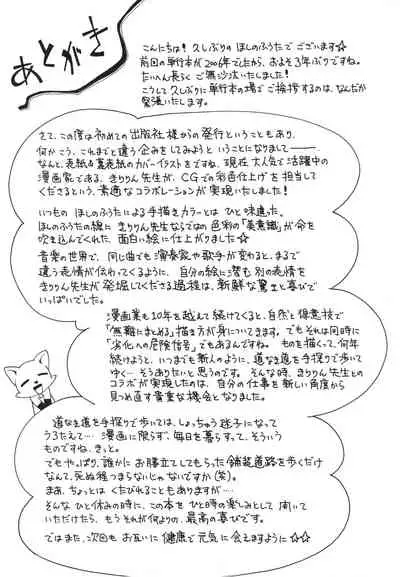 あとがき
こんにちは！久しぶりの ほしのふうた でございます☆
前回の単行本が2006年でしたから、およそ3年ぶりですね。
たいへん長らく ご無沙汰いたしました！
こうして久しぶりに単行本の場でご挨拶するのは、なんだか
緊張いたします。
さて、この度は初めての出版社様からの発行ということもあり、
何かこう、これまでと違う企みをしてみよう ということになりまして——
なんと、表紙&裏表紙のカバーイラストをですね、現在 大人気で活躍中の
漫画家である、きりりん先生が、CGでの彩色仕上げを担当して
くださるという、素適なコラボレーションが実現いたしました！
いつもの ほしのふうたによる手描きカラーとは ひと味違った。
ほしのふうたの絵に きりりん先生ならではの 色彩の「美意識」が命を
吹き込んでくれた、面白い絵に仕上がりました☆
音楽の世界で、同じ曲でも演奏家や歌手が変わると、まるで
違う表情が伝わってくるように、自分の絵に潜む別の表情を
きりりん先生が発掘してくださる過程は、新鮮な驚きと喜びで
いっぱいでした。
漫画業も10年を越えて続けてくると、自然と得意技で
「無難にまとめる」描き方が身についてきます。でもそれは同時に
「劣化への危険信号」でもあるんですね。ものを描くって、何年
続けようと、いつまでも新人のように、道なき道を手探りで歩いて
ゆく…そうありたいと思うのです。そんな時、きりりん先生との
コラボが実現したのは、自分の仕事を新しい角度から
見つめ直す貴重な機会となりました。
道なき道を手探りで歩いては、しょっちゅう迷子になって
うろたえて…漫画に限らず、毎日を暮らすって、そういう
ものですね、きっと。
でもやっぱり、誰かにお膳立てしてもらった舗装道路を歩くだけ
なんて、死ぬ程つまらないじゃないですか(笑)。
まあ、ちょっとは くたびれることもありますが…
そんな ひと休みの時に、この本を ひと時の楽しみとして 開いて
いただけたら、もう それが何よりの、最高の喜びです。
ではまた、次回も お互いに 健康で 元気に 会えますように☆☆